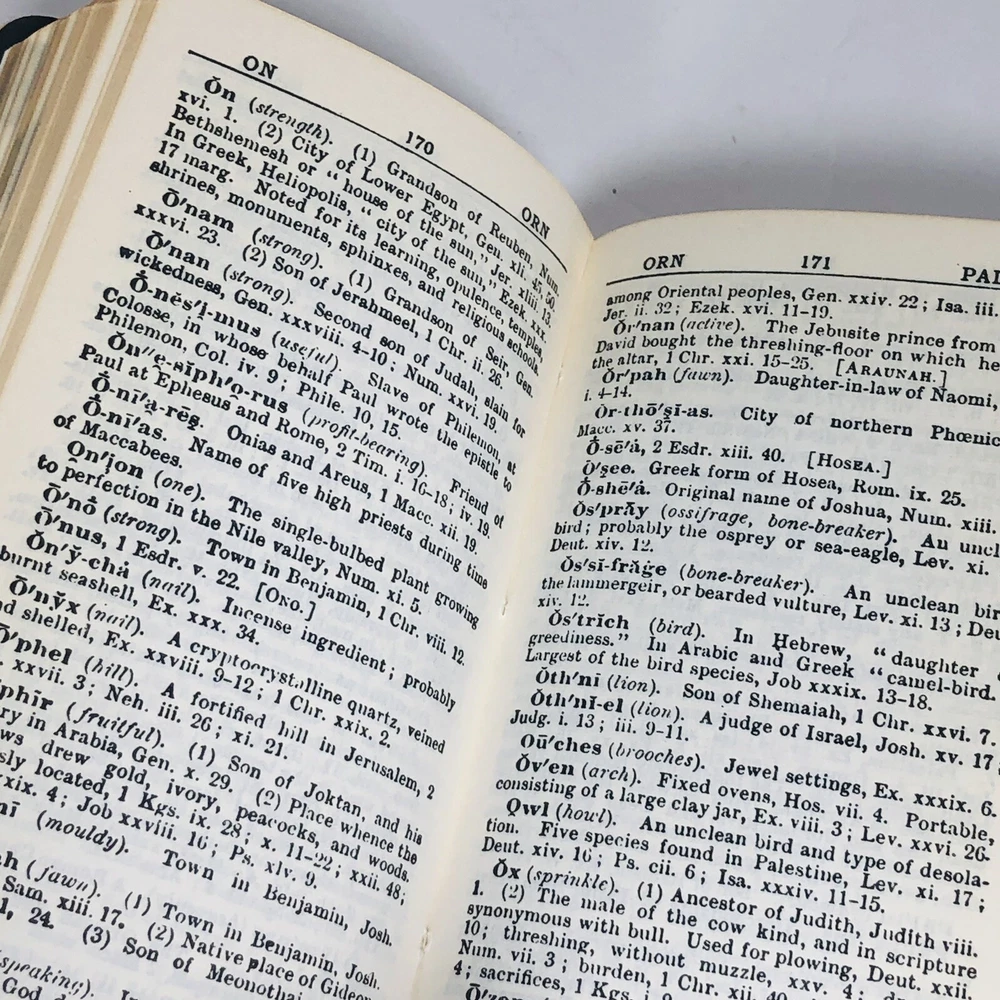 ON 170 ORN
Ŏn (strength). (1) Grandson of Reuben, Num.
xvi. 1. (2) City of Lower Egypt, Gen. xli. 45, 50.
Bethshemesh or "house of the sun," Jer. xliii. 13.
In Greek, Heliopolis, "city of the sun," Ezek. xxx.
17 marg. Noted for its learning, opulence, temples,
shrines, monuments, sphinxes, and religious schools.
Ō′nam (strong). (1) Grandson of Seir, Gen.
xxxvi. 23. (2) Son of Jerahmeel, 1 Chr. ii. 26.
Ō′nan (strong). Second son of Judah, slain for
wickedness, Gen. xxxviii. 4-10; Num. xxvi. 19.
Ō-nĕs′ĭ-mus (useful). Slave of Philemon, at
Colosse, in whose behalf Paul wrote the epistle to
Philemon, Col. iv. 9; Phile. 10, 15.
Ŏn″e-sĭph′o-rus (profit-bearing). Friend of
Paul at Ephesus and Rome, 2 Tim. i. 16-18; iv. 19.
Ō-nī′a-rēs̱. Onias and Areus, 1 Macc. xii. 19.
Ō-nī′as. Name of five high priests during time
of Maccabees.
Ọn′ion (one). The single-bulbed plant growing
to perfection in the Nile valley, Num. xi. 5.
Ō′nō (strong). Town in Benjamin, 1 Chr. viii. 12.
Ō′nus, 1 Esdr. v. 22. [ONO.]
Ŏn′ў-chȧ (nail). Incense ingredient; probably
burnt seashell, Ex. xxx. 34.
Ō′nўx (nail). A cryptocrystalline quartz, veined
nd shelled, Ex. xxviii. 9-12; 1 Chr. xxix. 2.
Ō′phel (hill). A fortified hill in Jerusalem, 2
xxvii. 3; Neh. iii. 26; xi. 21.
phĭr (fruitful). (1) Son of Joktan, and his
ry in Arabia, Gen. x. 29. (2) Place whence the
ws drew gold, ivory, peacocks, and woods.
sly located, 1 Kgs. ix. 28; x. 11-22; xxii. 48;
xix. 4; Job xxviii. 16; Ps. xlv. 9.
nī (mouldy). Town in Benjamin, Josh.
ah (fawn). (1) Town in Benjamin, Josh.
Sam. xiii. 17. (2) Native place of Gideon
1, 24. (3) Son of Meonothai
speaking).
God
ORN 171 PAI
among Oriental peoples, Gen. xxiv. 22; Isa. iii.
Jer. ii. 32; Ezek. xvi. 11-19.
Ôr′nan (active). The Jebusite prince from
David bought the threshing-floor on which he
the altar, 1 Chr. xxi. 15-25. [ARAUNAH.]
Ôr′pah (fawn). Daughter-in-law of Naomi,
i. 4-14.
Ôr-thō′sĭ-as. City of northern Phœnic
Macc. xv. 37.
Ō-sē′ȧ, 2 Esdr. xiii. 40. [HOSEA.]
Ō′s̱ee. Greek form of Hosea, Rom. ix. 25.
Ō-shē′ȧ. Original name of Joshua, Num. xiii.
Ŏs′prāy (ossifrage, bone-breaker). An uncl
bird; probably the osprey or sea-eagle, Lev. xi.
Deut. xiv. 12.
Ŏs′sĭ-frāge (bone-breaker). An unclean bir
the lammergeir, or bearded vulture, Lev. xi. 13; Deu
xiv. 12.
Ŏs′trĭch (bird). In Hebrew, "daughter
greediness." In Arabic and Greek "camel-bird.
Largest of the bird species, Job xxxix. 13-18.
Ŏth′nī (lion). Son of Shemaiah, 1 Chr. xxvi. 7.
Ŏth′nĭ-el (lion). A judge of Israel, Josh. xv. 17;
Judg. i. 13; iii. 9-11.
Oū′ches (brooches). Jewel settings, Ex. xxxix. 6.
Ŏv′en (arch). Fixed ovens, Hos. vii. 4. Portable,
consisting of a large clay jar, Ex. viii. 3; Lev. xxvi. 26.
Owl (howl). An unclean bird and type of desola-
tion. Five species found in Palestine, Lev. xi. 17;
Deut. xiv. 16; Ps. cii. 6; Isa. xxxiv. 11-15.
Ŏx (sprinkle). (1) Ancestor of Judith, Judith viii.
1. (2) The male of the cow kind, and in scripture
synonymous with bull. Used for plowing, Deut. xxii.
10; threshing, without muzzle, xxv. 4; dr
Num. vii. 3; burden, 1 Chr. xii. 40
4; sacrifices, 1 Kgs. i. 9